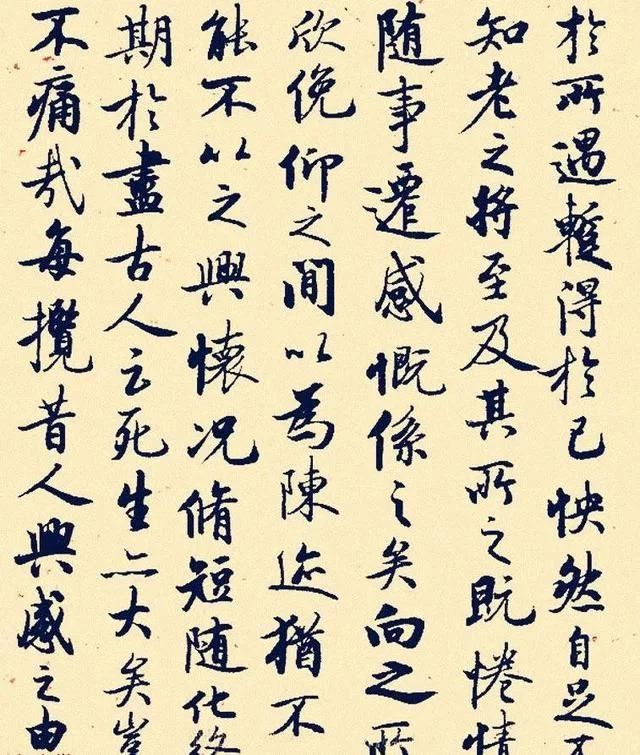 於所遇暫得於己怏然自足
知老之將至及其所之既惓情
随事遷感慨係之矣向之所
欣俛仰之閒以為陳迹猶不
能不以之興懷况脩短随化終
期於盡古人云死生亦大矣豈
不痛哉每攬昔人興感之由